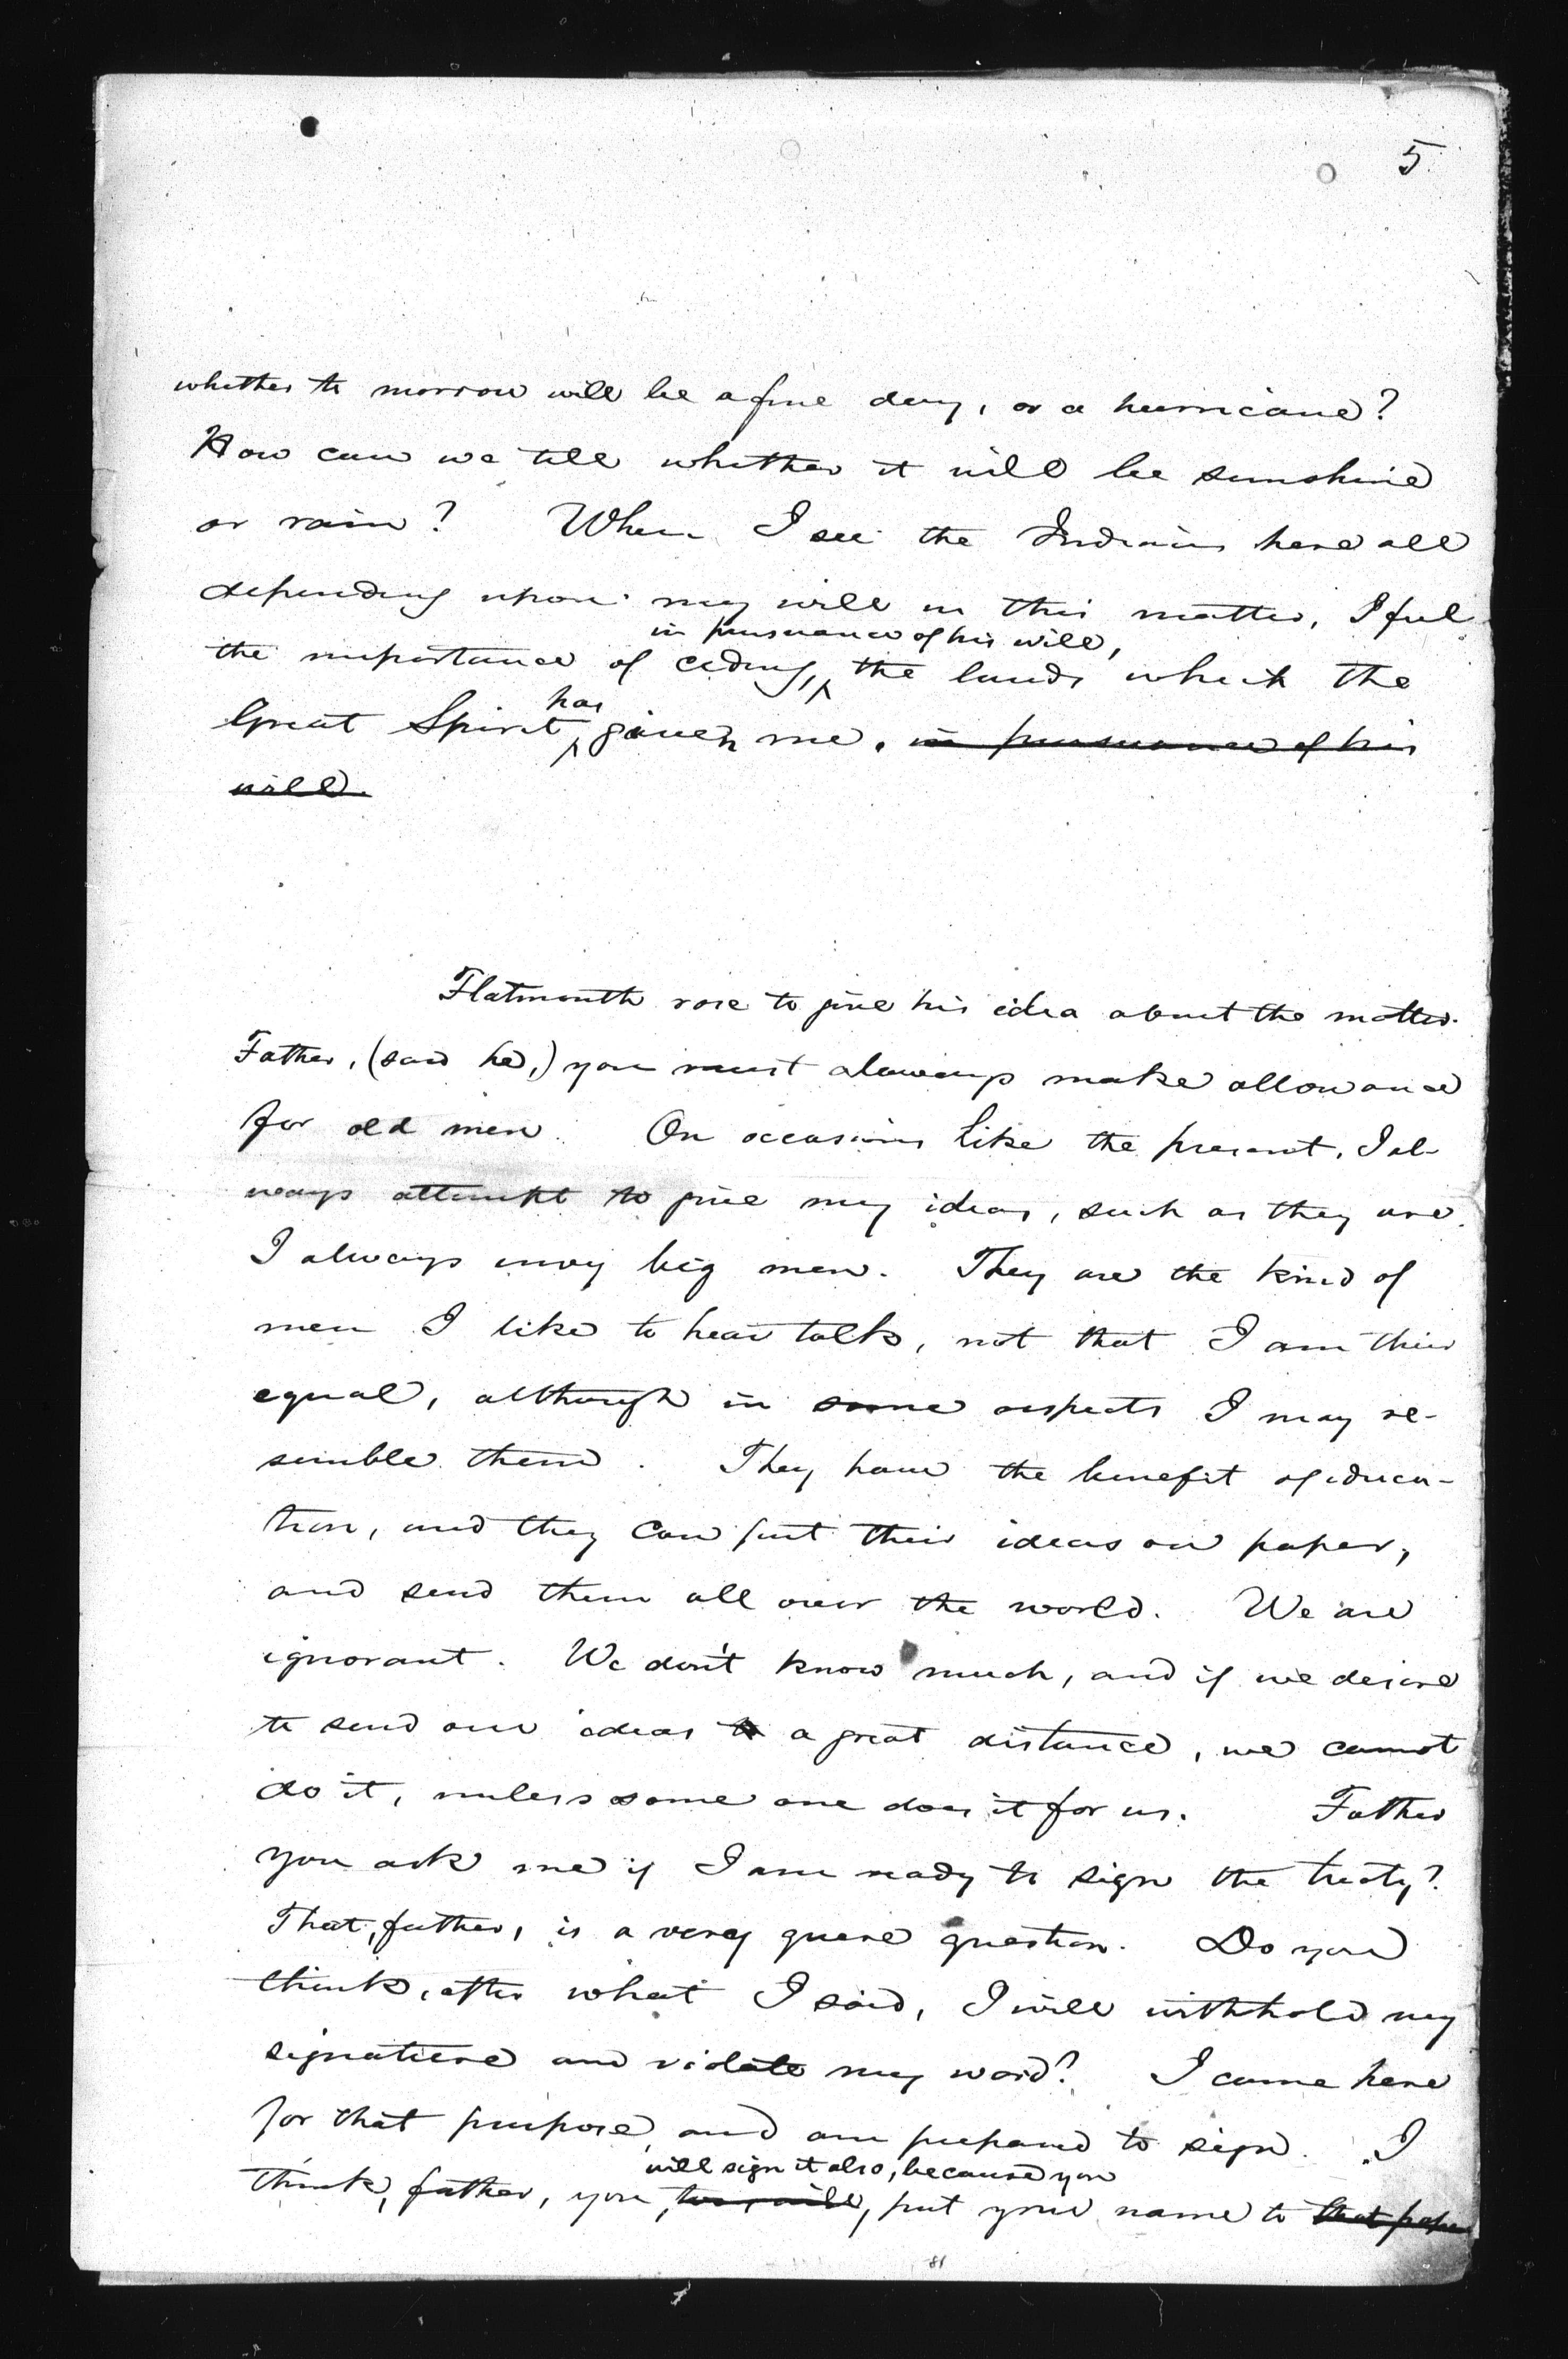 5
whether to morrow will be a fine day, or a hurricane?
How can we tell whether it will be sunshine
or rain? When I see the Indians here all
depending upon my will in this matter, I feel
in pursuance of his will,
the importance of ceding, the lands which the
has
Great Spirit given me. in pursuance of his
will.
Flatmouth rose to give his idea about the matter.
Father, (said he,) you must always make allowance
for old men. On occasions like the present, I al-
ways attempt to give my ideas, such as they are.
I always envy big men. They are the kind of
men I like to hear talk, not that I am their
equal, although in some respects I may re-
semble them. They have the benefit of educa-
tion, and they can put their ideas on paper,
and send them all over the world. We are
ignorant. We don't know much, and if we desire
to send our ideas to a great distance, we cannot
do it, unless some one does it for us. Father
you ask me if I am ready to sign the treaty?
That, father, is a very quere question. Do you
think, after what I said, I will withhold my
signature and violate my word? I came here
for that purpose, and am prepared to sign. I
will sign it also, because you
think, father, you, too, will, put your name to that paper
81